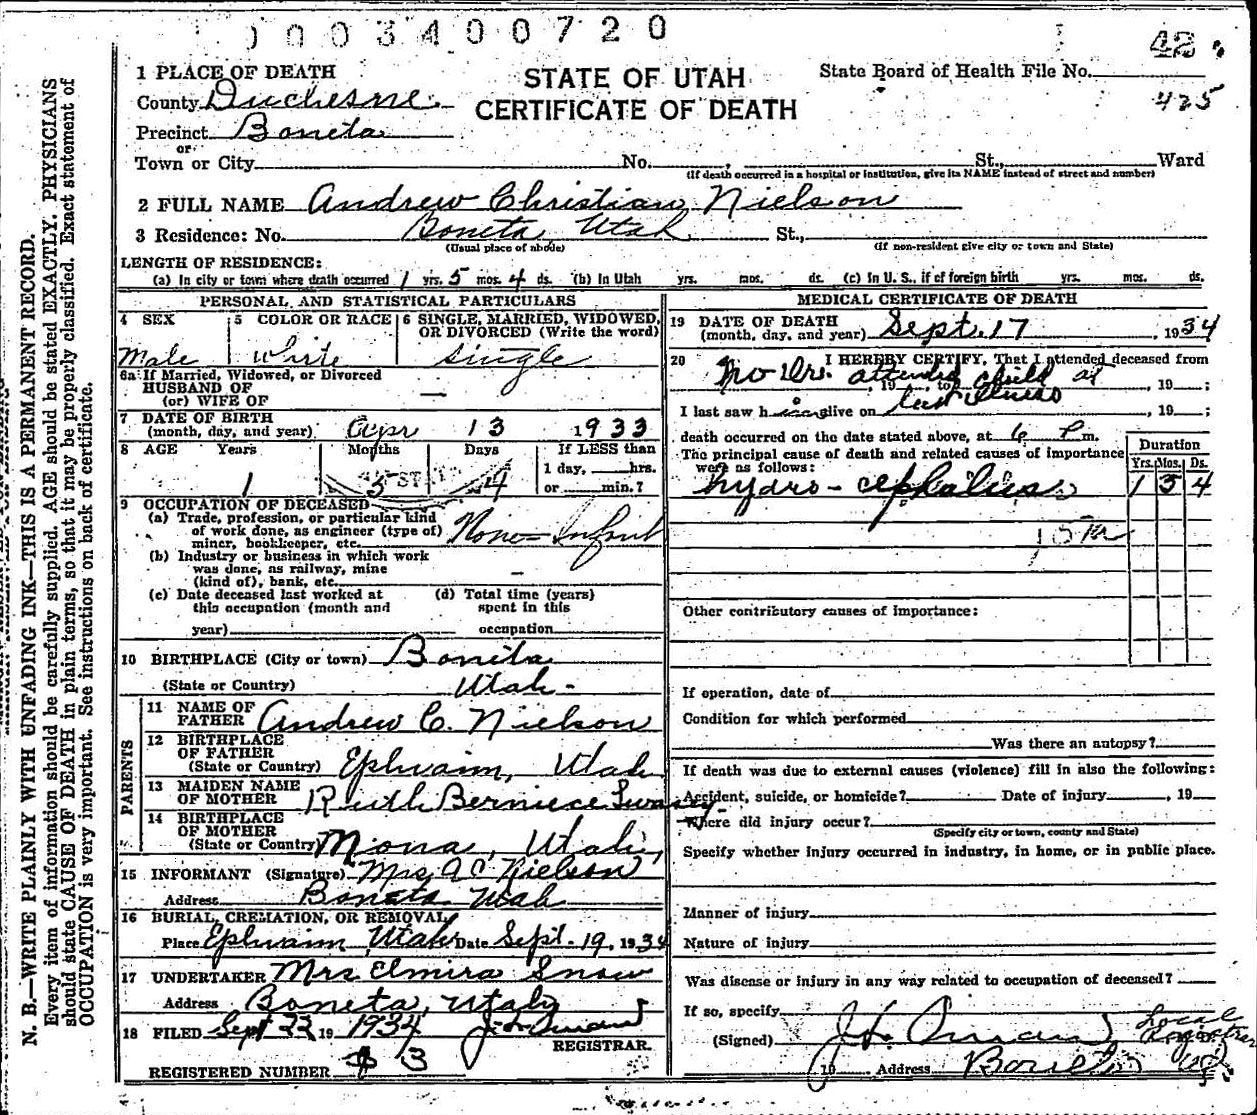 0003400720
42
1 PLACE OF DEATH
STATE OF UTAH
State Board of Health File No.
County Duchesne
CERTIFICATE OF DEATH
425
Precinct Boneta
or
Town or City No. , St., Ward
(If death occurred in a hospital or institution, give its NAME instead of street and number)
2 FULL NAME Andrew Christian Nielson
3 Residence: No. Boneta Utah St.,
(Usual place of abode) (If non-resident give city or town and State)
LENGTH OF RESIDENCE:
(a) In city or town where death occurred 1 yrs. 5 mos. 4 ds. (b) In Utah yrs. mos. ds. (c) In U. S., if of foreign birth yrs. mos. ds.
PERSONAL AND STATISTICAL PARTICULARS
4 SEX
Male
5 COLOR OR RACE
White
6 SINGLE, MARRIED, WIDOWED, OR DIVORCED (Write the word)
Single
6a If Married, Widowed, or Divorced
HUSBAND OF
(or) WIFE OF —
7 DATE OF BIRTH
(month, day, and year) Apr 13 1933
8 AGE Years Months Days If LESS than
1 day, hrs.
1 5 4 or min.?
9 OCCUPATION OF DECEASED
(a) Trade, profession, or particular kind
of work done, as engineer (type of)
miner, bookkeeper, etc. None - Infant
(b) Industry or business in which work
was done, as railway, mine
(kind of), bank, etc. –
(c) Date deceased last worked at
this occupation (month and
year)
(d) Total time (years)
spent in this
occupation
10 BIRTHPLACE (City or town) Boneta
(State or Country) Utah -
PARENTS
11 NAME OF
FATHER Andrew C. Nielson
12 BIRTHPLACE
OF FATHER
(State or Country) Ephraim, Utah
13 MAIDEN NAME
OF MOTHER Ruth Berniece Swasey
14 BIRTHPLACE
OF MOTHER
(State or Country) Mona, Utah,
15 INFORMANT (Signature) Mrs A C Nielson
Address Boneta Utah
16 BURIAL, CREMATION, OR REMOVAL
Place Ephraim, Utah Date Sept. 19, 1934
17 UNDERTAKER Mrs Elmira Snow
Address Boneta, Utah
18 FILED Sept 22 19 1934
REGISTRAR.
REGISTERED NUMBER 3
MEDICAL CERTIFICATE OF DEATH
19 DATE OF DEATH
(month, day, and year) Sept. 17, 1934
20 I HEREBY CERTIFY, That I attended deceased from
, 19 , to , 19 ;
No Dr. attended child at
last illness
I last saw him alive on , 19 ;
death occurred on the date stated above, at 6 P m.
The principal cause of death and related causes of importance
were as follows:
Duration
Yrs. Mos. Ds.
hydro-cephalus 1 5 4
Other contributory causes of importance:
If operation, date of
Condition for which performed
Was there an autopsy?
If death was due to external causes (violence) fill in also the following:
Accident, suicide, or homicide? Date of injury , 19
Where did injury occur?
(Specify city or town, county and State)
Specify whether injury occurred in industry, in home, or in public place.
Manner of injury
Nature of injury
Was disease or injury in any way related to occupation of deceased?
If so, specify
(Signed) Local Registrar
19 Address Boneta Ut.
N. B.—WRITE PLAINLY WITH UNFADING INK—THIS IS A PERMANENT RECORD.
Every item of information should be carefully supplied. AGE should be stated EXACTLY. PHYSICIANS
should state CAUSE OF DEATH in plain terms, so that it may be properly classified. Exact statement of
OCCUPATION is very important. See instructions on back of certificate.